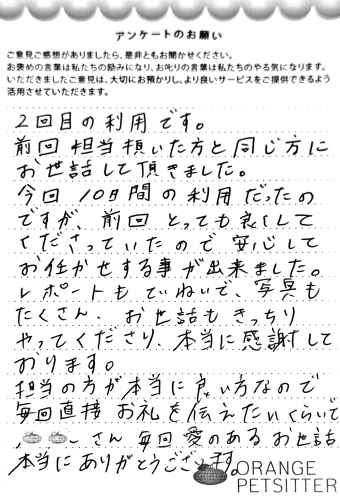 アンケートのお願い
ご意見ご感想がありましたら、是非ともお聞かせください。
お褒めの言葉は私たちの励みになり、お叱りの言葉は私たちのやる気になります。
いただきましたご意見は、大切にお預かりし、より良いサービスをご提供できるよう
活用させていただきます。
2回目の利用です。
前回 担当頂いた方と同じ方に
お世話して頂きました。
今回 10日間の利用だったの
ですが、前回 とっても良くして
くださっていたので 安心して
お任かせする事が出来ました。
レポートも ていねいで、写真も
たくさん、お世話もきっちり
やってくださり、本当に感謝して
おります。
担当の方が本当に良い方なので
毎回直接 お礼を伝えたいくらいで
さん 毎回 愛のある お世話
本当に ありがとうございます。
ORANGE
PETSITTER